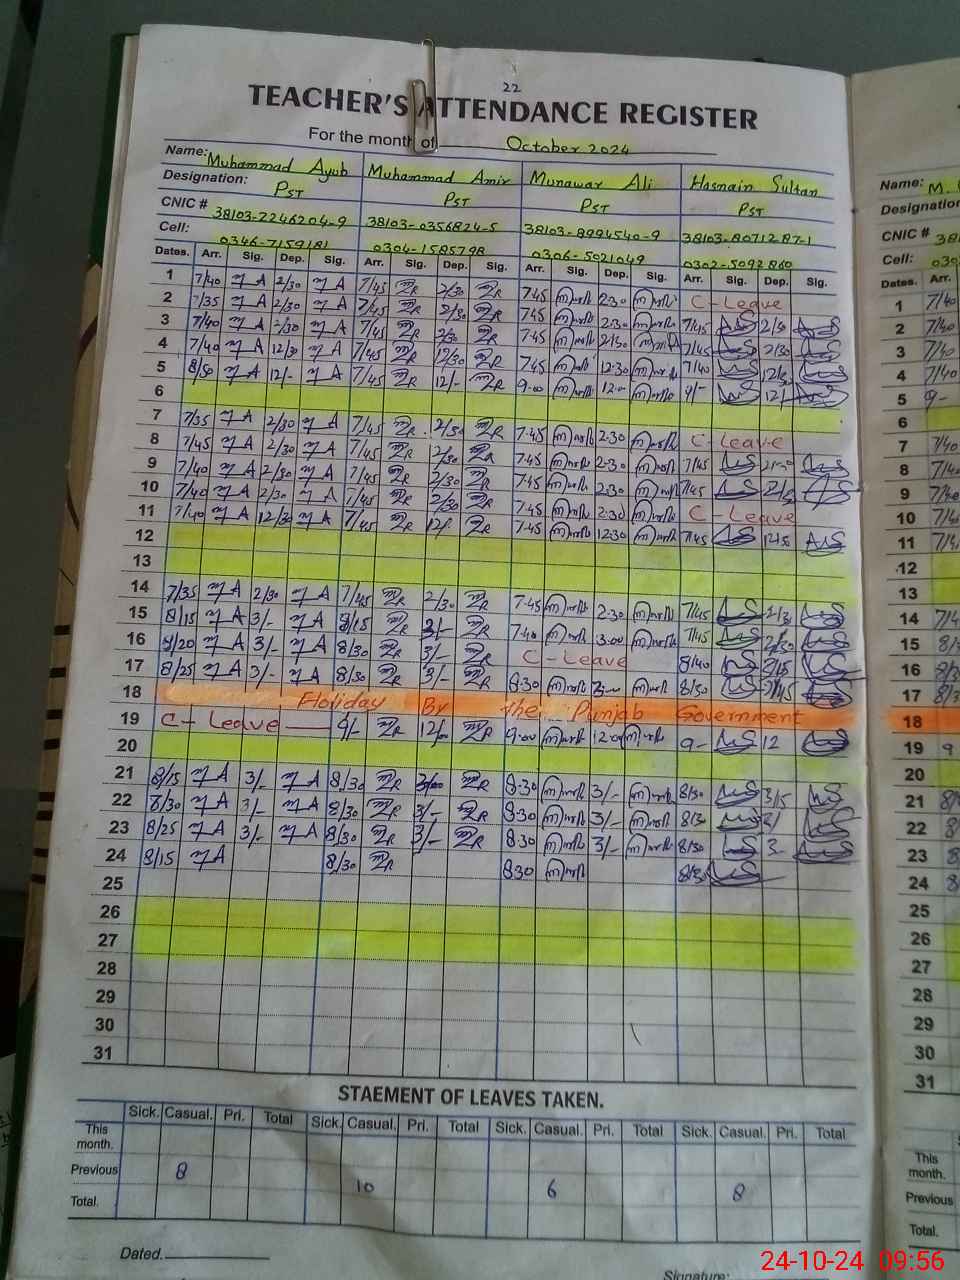 22
TEACHER'S ATTENDANCE REGISTER
For the month of October 2024
Name: Muhammad Ayub Muhammad Amir Munawar Ali Hasnain Sultan
Designation: PST PST PST PST
CNIC # 38103-2246204-9 38103-0356824-5 38103-8994540-9 38103-8071287-1
Cell: 0346-7159181 0304-1585798 0306-5021049 0302-5092860
Dates. Arr. Sig. Dep. Sig. Arr. Sig. Dep. Sig. Arr. Sig. Dep. Sig. Arr. Sig. Dep. Sig.
1 7/40 2/30 7/45 2/30 7.45 2.30 C-Leave
2 7/35 2/30 7/45 2/30 7.45 2.30 7/45 2/30
3 7/40 2/30 7/45 2/30 7.45 2.30 7/45 2/30
4 7/40 12/30 7/45 12/30 7.45 12.30 7/40
5 8/50 12/- 7/45 12/- 9.00 12.0 9/-
6
7 7/35 2/30 7/45 2/30 7.45 2.30 C-Leave
8 7/45 2/30 7/45 2/30 7.45 2.30 7/45
9 7/40 2/30 7/45 2/30 7.45 2.30 7/45
10 7/40 2/30 7/45 2/30 7.45 2.30 C-Leave
11 7/40 12/30 7/45 7.45 12.30 7/45 12.15
12
13
14 7/35 2/30 7/45 2/30 7.45 2.30 7/45
15 8/15 3/- 8/15 3/- 7.40 3.00 7/45 2/30
16 8/20 3/- 8/30 3/- C-Leave 8/40
17 8/25 3/- 8/30 3/- 8.30 8/30
18 Holiday By the Punjab Government
19 C-Leave 9/- 9.00 12.00 9- 12
20
21 8/15 3/- 8/30 8.30 3/- 8/30 3/15
22 8/30 3/- 8/30 3/- 8.30 3/- 8/30 3/
23 8/25 3/- 8/30 3/- 8.30 3/- 8/30 3-
24 8/15 8/30 8.30 8/30
25
26
27
28
29
30
31
STAEMENT OF LEAVES TAKEN.
Sick. Casual. Pri. Total Sick. Casual. Pri. Total Sick. Casual. Pri. Total Sick. Casual. Pri. Total
This month.
Previous 8 10 6 8
Total.
Dated.
Signature:
Name: M.
Designation
CNIC # 38
Cell: 030
Dates. Arr.
1 7/40
2 7/40
3 7/40
4 7/40
5 9-
6
7 7/40
8 7/40
9 7/40
10 7/4
11 7/4
12
13
14 7/4
15 8/
16 8/3
17 8/3
18
19 9
20
21 8/
22 8/
23 8
24 8
25
26
27
28
29
30
31
This month.
Previous
Total.
24-10-24 09:56